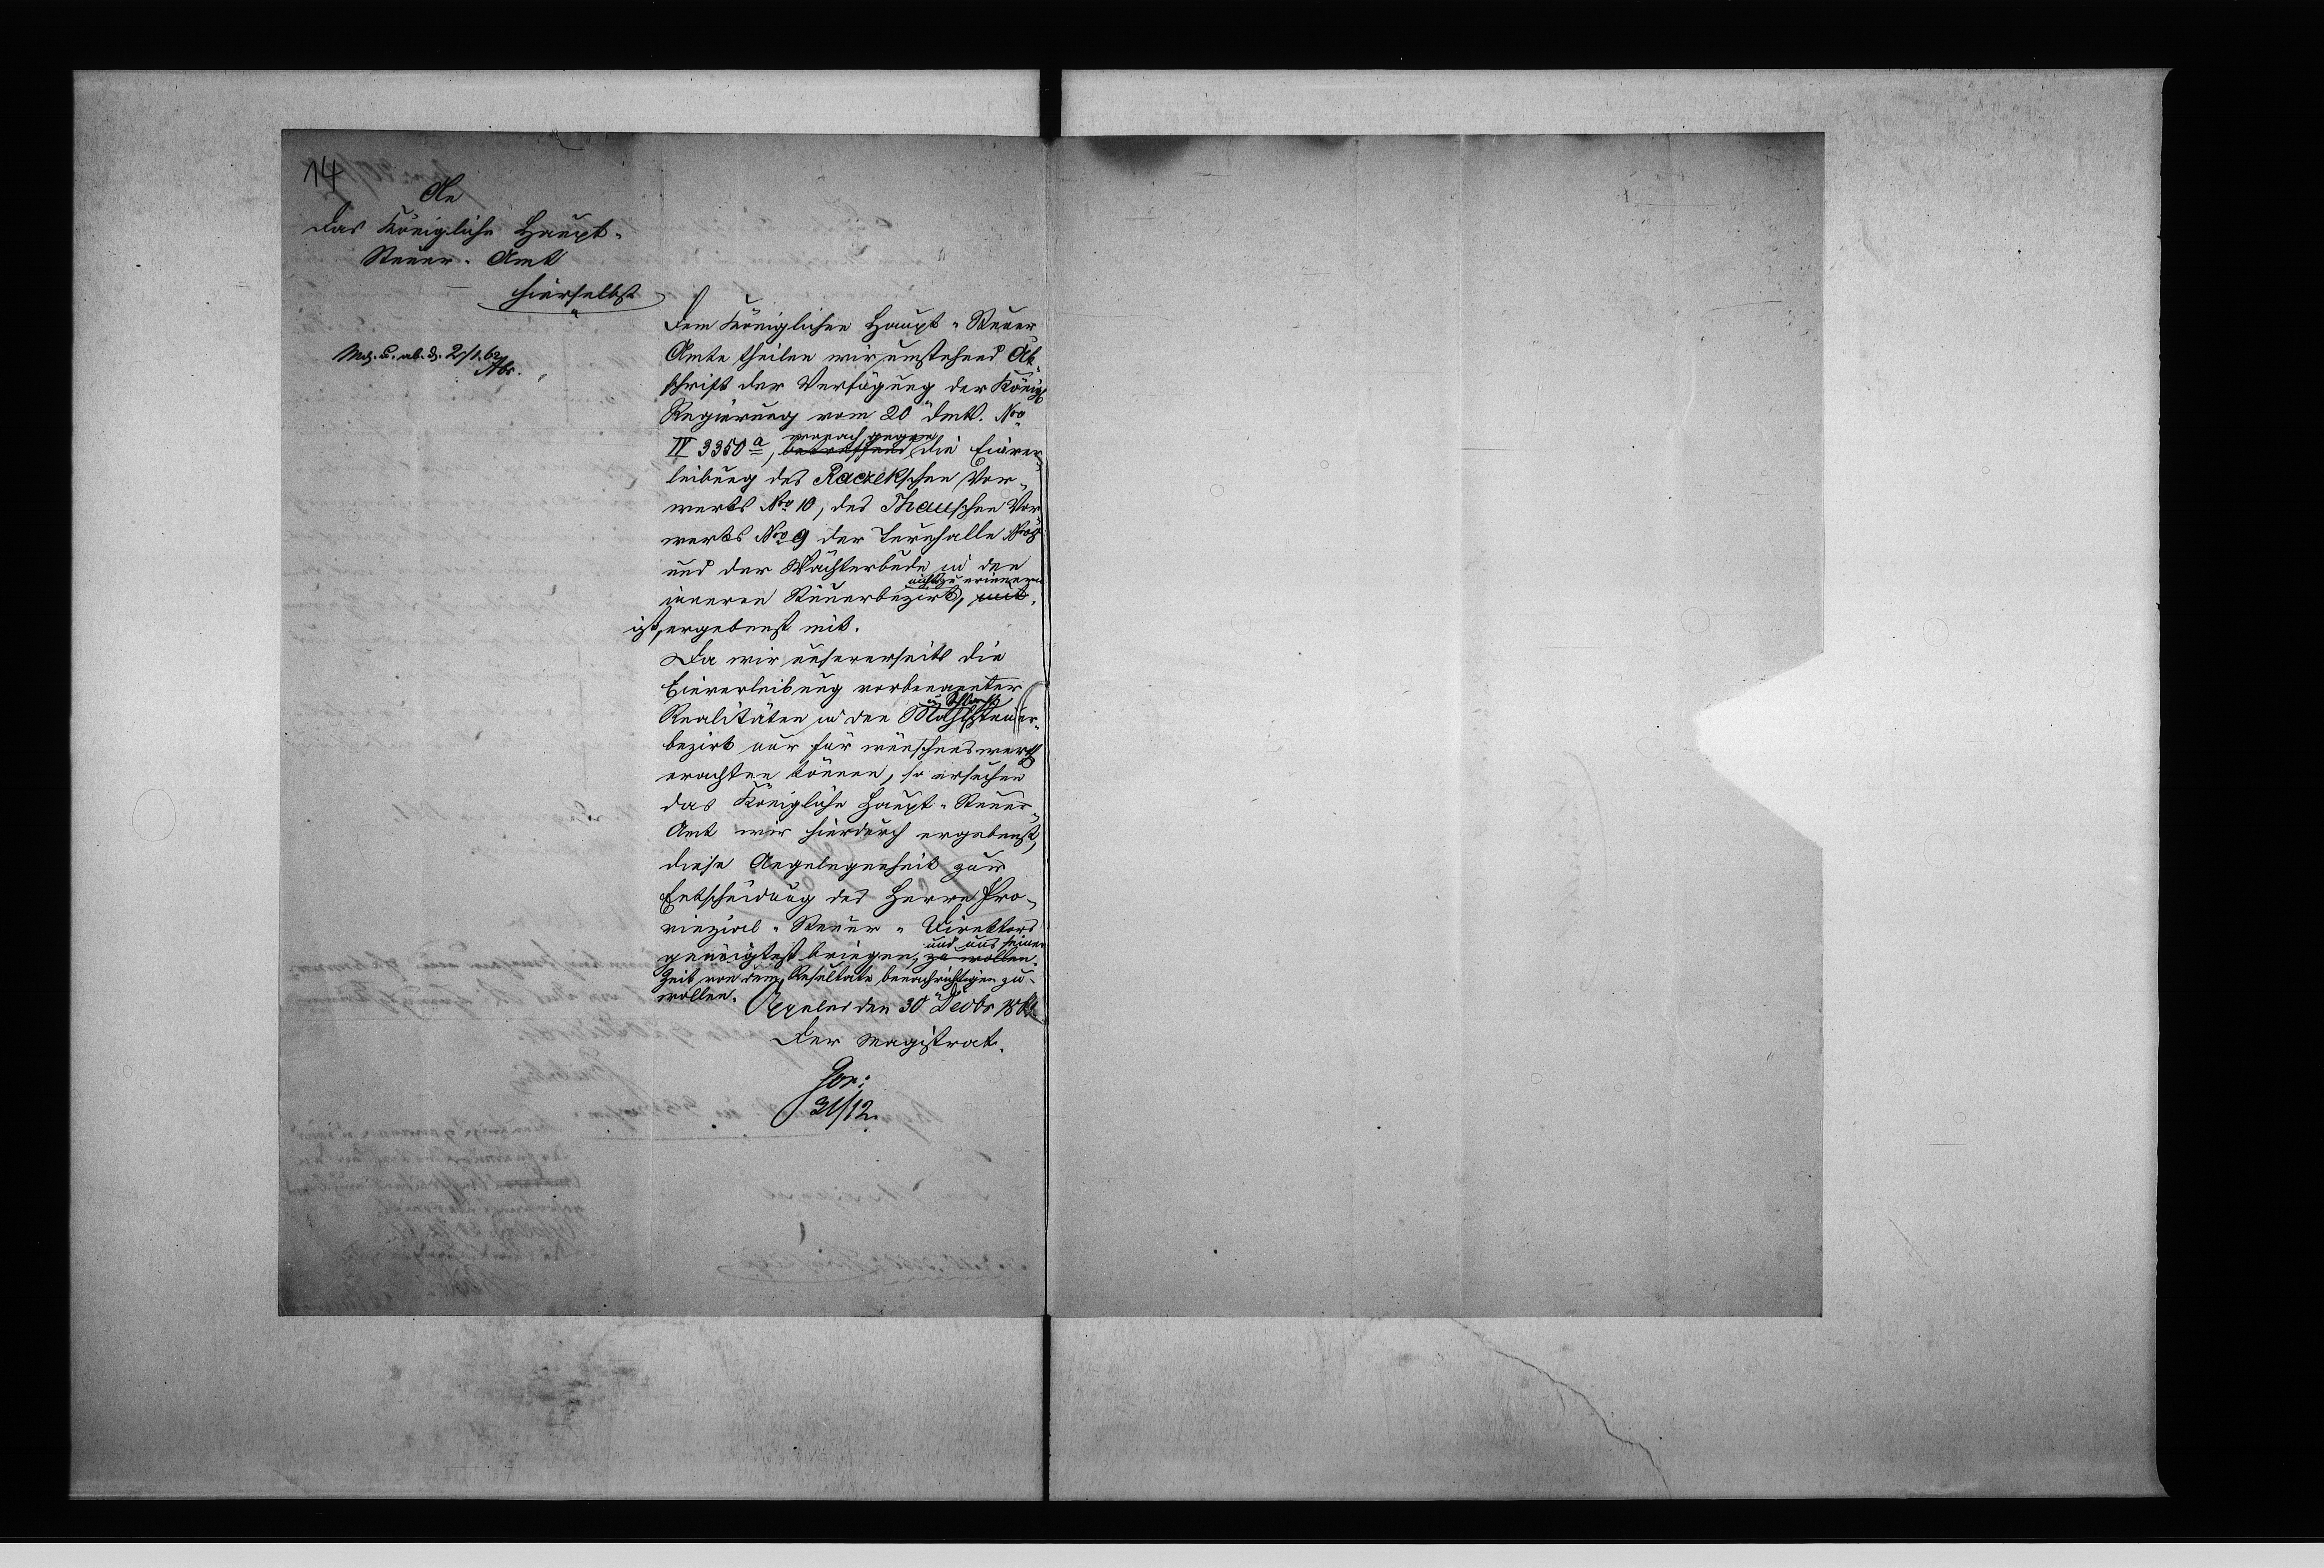 14
An
das Königliche Haupt-
Steuer-Amt
hierselbst
2/1.62
Dem Königlichen Haupt-Steuer
Amte theilen wir umstehend Ab
schrift der Verfügung der Königl
Regierung vom 20 dMts. No
IV 3350a, betreffend wonach gegen die Einver
leibung des Raczekschen Vor-
werks No 10, des Thauschen Vor
werks No 9 der Turnhalle
und der Wächterbude in den
inneren Steuerbezirk, nichts zu erinnern
ist, ergebenst mit.
Da wir unsererseits die
Einverleibung vorbenannter
Realitäten in den Mahl u Schlachtsteuer-
bezirk nur für wünschenswerth
erachten können, so ersuchen
das Königliche Haupt-Steuer-
Amt wir hierdurch ergebenst,
diese Angelegenheit zur
Entscheidung des Herrn Pro-
vinzial-Steuer-Direktors
geneigtest bringen, zu wollen. und uns seiner
Zeit von dem Resultate benachrichtigen zu
wollen.
Oppeln den 30 Decbr 1861
Der Magistrat.
Gor:
31/12.